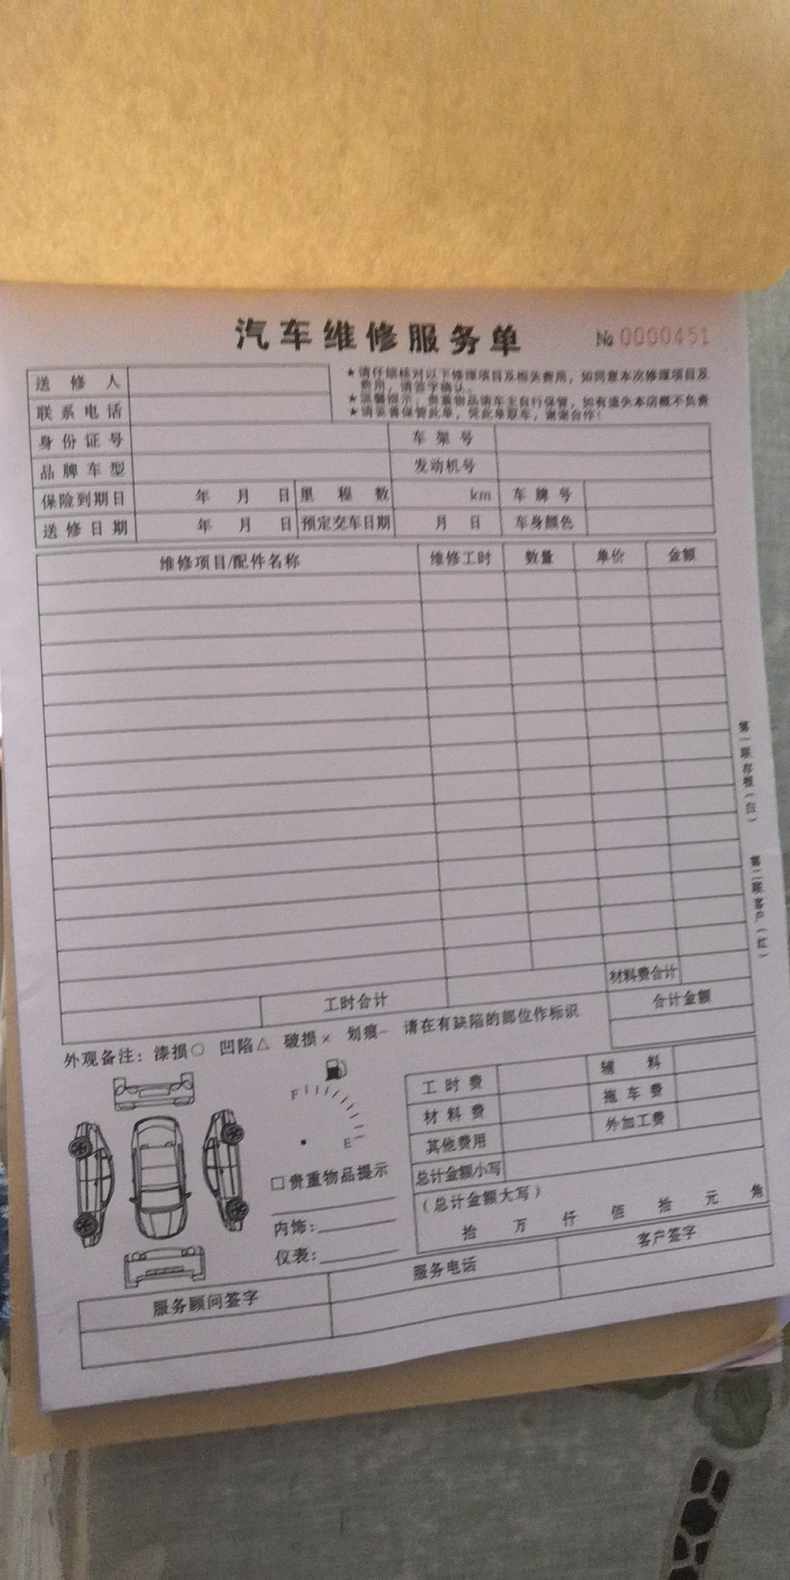 汽车维修服务单 № 0000451
送修人
★请仔细核对以下修理项目及相关费用，如同意本次修理项目及
费用，请签字确认。
联系电话
★温馨提示：贵重物品请车主自行保管，如有遗失本店概不负责
★请妥善保管此单，凭此单取车，谢谢合作！
身份证号 车架号
品牌车型 发动机号
保险到期日 年 月 日 里程数 km 车牌号
送修日期 年 月 日 预定交车日期 月 日 车身颜色
维修项目/配件名称 维修工时 数量 单价 金额
工时合计 材料费合计
合计金额
外观备注：漆损○ 凹陷△ 破损× 划痕－ 请在有缺陷的部位作标识
F
E
□贵重物品提示
内饰：
仪表：
工时费 辅料
材料费 拖车费
其他费用 外加工费
总计金额小写
（总计金额大写）
拾 万 仟 佰 拾 元 角
服务顾问签字 服务电话 客户签字
第一联存根（白）
第二联客户（红）